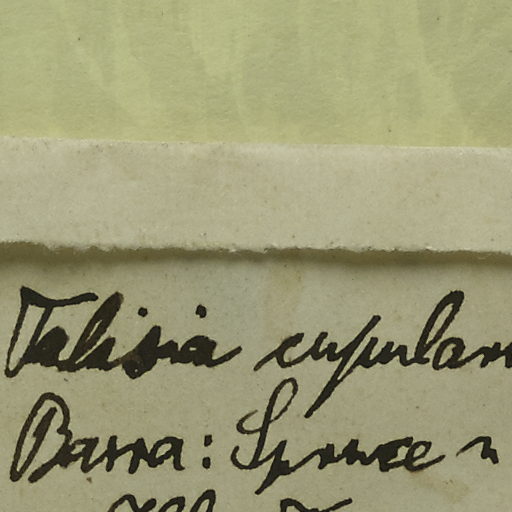 Talisia cupular
Barra: Spruce n